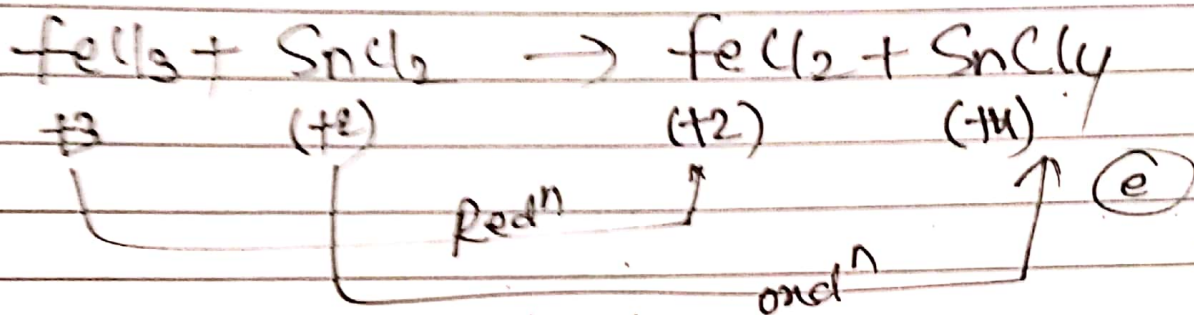 FeCl3 + SnCl2 → FeCl2 + SnCl4
+3 (+2) (+2) (+4)
(e)
Redⁿ
oxdⁿ